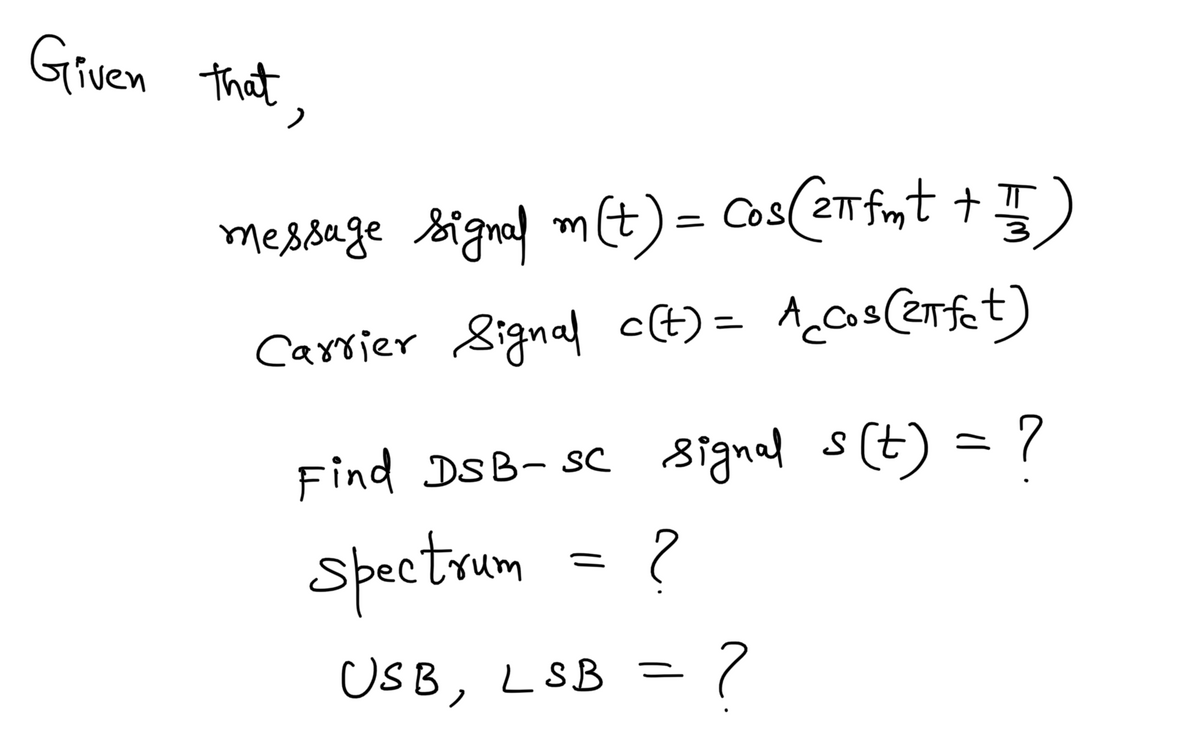 Given that,
message signal m(t) = Cos(2πfmt + π/3)
Carrier signal c(t) = AcCos(2πfct)
Find DSB-SC signal s(t) = ?
spectrum = ?
USB, LSB = ?